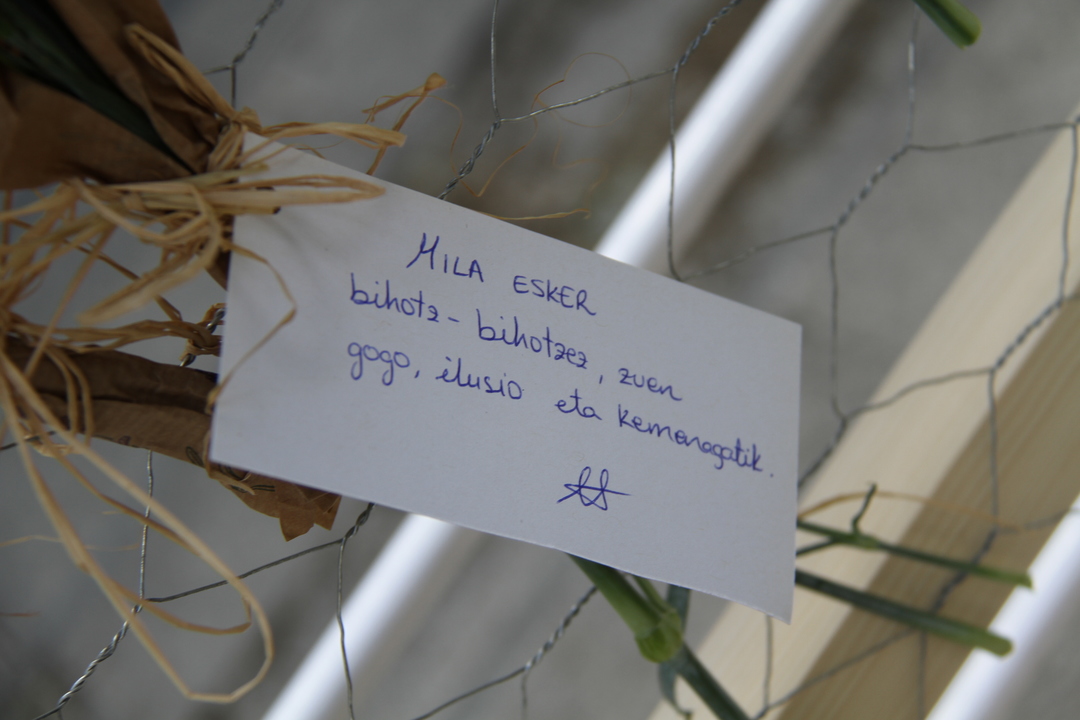 MILA ESKER
bihotz-bihotzez, zuen
gogo, ilusio eta kemenagatik.